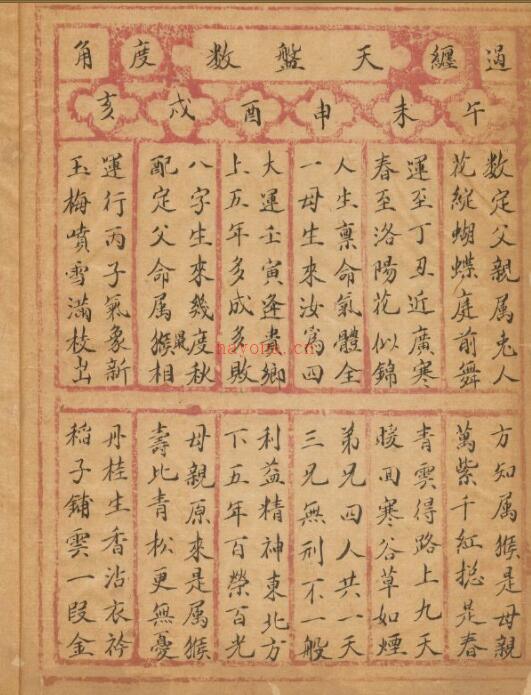 過纏天盤數度角
午未申酉戌亥
數定父親属兎人
花綻蝴蝶庭前舞
運至丁丑近廣寒
春至洛陽花似錦
人生禀命氣體全
一母生來汝爲四
大運壬寅逢貴鄉
上五年多成多敗
八字生來幾度秋
配定父命属猴相
運行丙子氣象新
玉梅噴雪滿枝出
方知属猴是母親
萬紫千紅揔是春
青雲得路上九天
暖囬寒谷草如煙
弟兄四人共一天
三兄無刑不一般
利益精神東北方
下五年百榮百光
母親原來是属猴
壽比青松更無憂
丹桂生香沾衣衿
稻子鋪雲一段金
nayona.cn